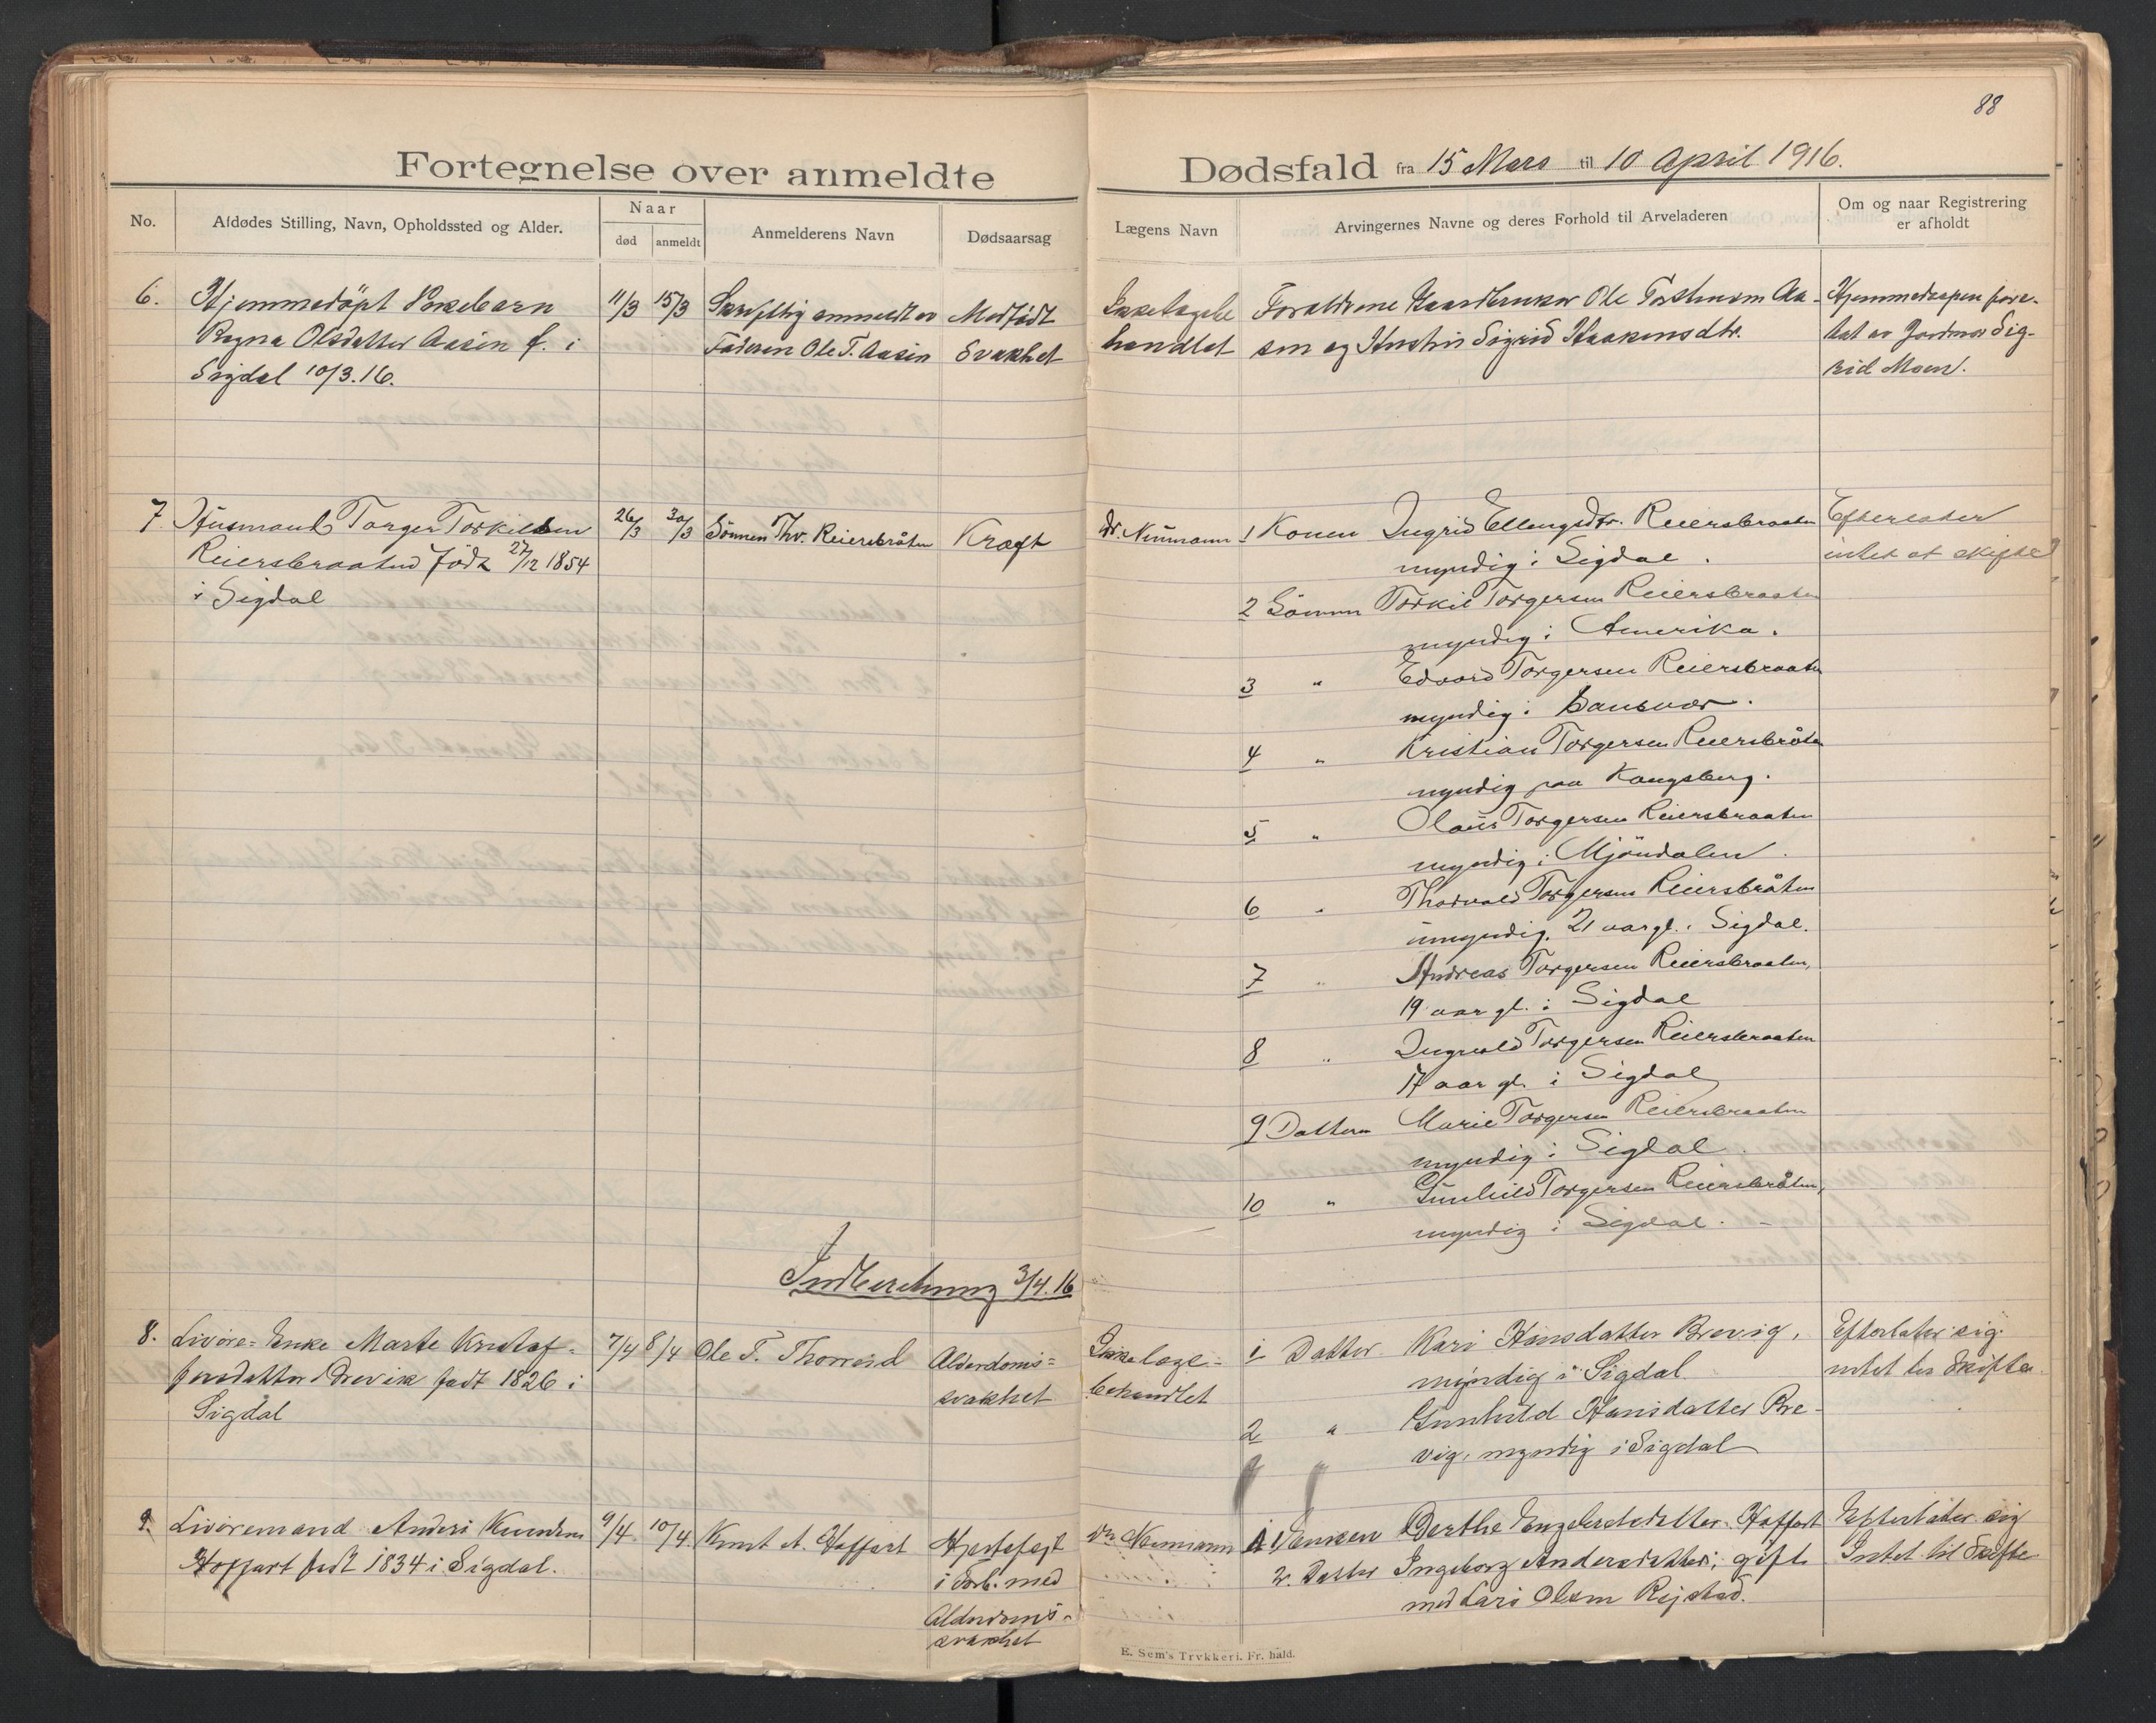 88
Fortegnelse over anmeldte Dødsfald fra 15 Mars til 10 April 1916.
No.
Afdødes Stilling, Navn, Opholdssted og Alder.
Naar
død
anmeldt
Anmelderens Navn
Dødsaarsag
Lægens Navn
Arvingernes Navne og deres Forhold til Arveladeren
Om og naar Registrering
er afholdt
6.
Hjemmedöpt Pikebarn
Ragna Olsdatter Aasen f. i
Sigdal 10/3.16.
11/3
15/3
Skriftlig anmeldt av
Faderen Ole T. Aasen
Medfödt
Svakhet
Ikke læge
behandlet
Forældrene Gaardbruker Ole Torstensen Aa-
sen og Hustru Sigrid Haakensdtr.
Hjemmedaapen fore-
tat av Jordmor Sig-
rid Moen.
7.
Husmand Torger Torkilsen
Reiersbraaten födt 27/12 1854
i Sigdal
26/3
30/3
Sönnen Thv. Reiersbråten
Kræft
Dr. Neumann
1 Konen Ingrid Ellingsdtr. Reiersbraaten
myndig i Sigdal.
2 Sönnen Torkil Torgersen Reiersbraaten
myndig i Amerika.
3 " Edvard Torgersen Reiersbraaten
myndig i Sansvær.
4 " Kristian Torgersen Reiersbråten
myndig paa Kongsberg.
5 " Olaus Torgersen Reiersbraaten
myndig i Mjöndalen.
6 " Thorvald Torgersen Reiersbråten
umyndig, 21 aar gl. i Sigdal.
7 " Andreas Torgersen Reiersbraaten,
19 aar gl. i Sigdal
8 " Ingvald Torgersen Reiersbraaten
17 aar gl. i Sigdal
9 Datteren Marie Torgersen Reiersbraaten
myndig i Sigdal.
10 " Gunhild Torgersen Reiersbråten,
myndig i Sigdal. -
Efterlater
intet at skifte
Indberetning 3/4.16
8.
Livöre-Enke Marte Kristof-
fersdatter Brevik født 1826 i
Sigdal
7/4
8/4
Ole T. Thorrud
Alderdoms=
svakhet
Ikke læge-
behandlet
1 Datter Kari Hansdatter Brevig,
myndig i Sigdal.
2 " Gunhild Hansdatter Bre-
vig, myndig i Sigdal
Efterlater sig
intet til Skifte.
9.
Livöremand Anders Knudsen
Hoffart født 1834 i Sigdal.
9/4.
10/4.
Knut A. Hoffart
Hjertefeil
i Forb. med
Alderdoms-
svakhet
Dr. Neumann
1 Enken Berthe Engebretsdatter Hoffart
2. Datter Ingeborg Andersdatter, gift
med Lars Olsen Rejstad.
Efterlater sig
Intet til Skifte.
E. Sem's Trykkeri. Fr.hald.